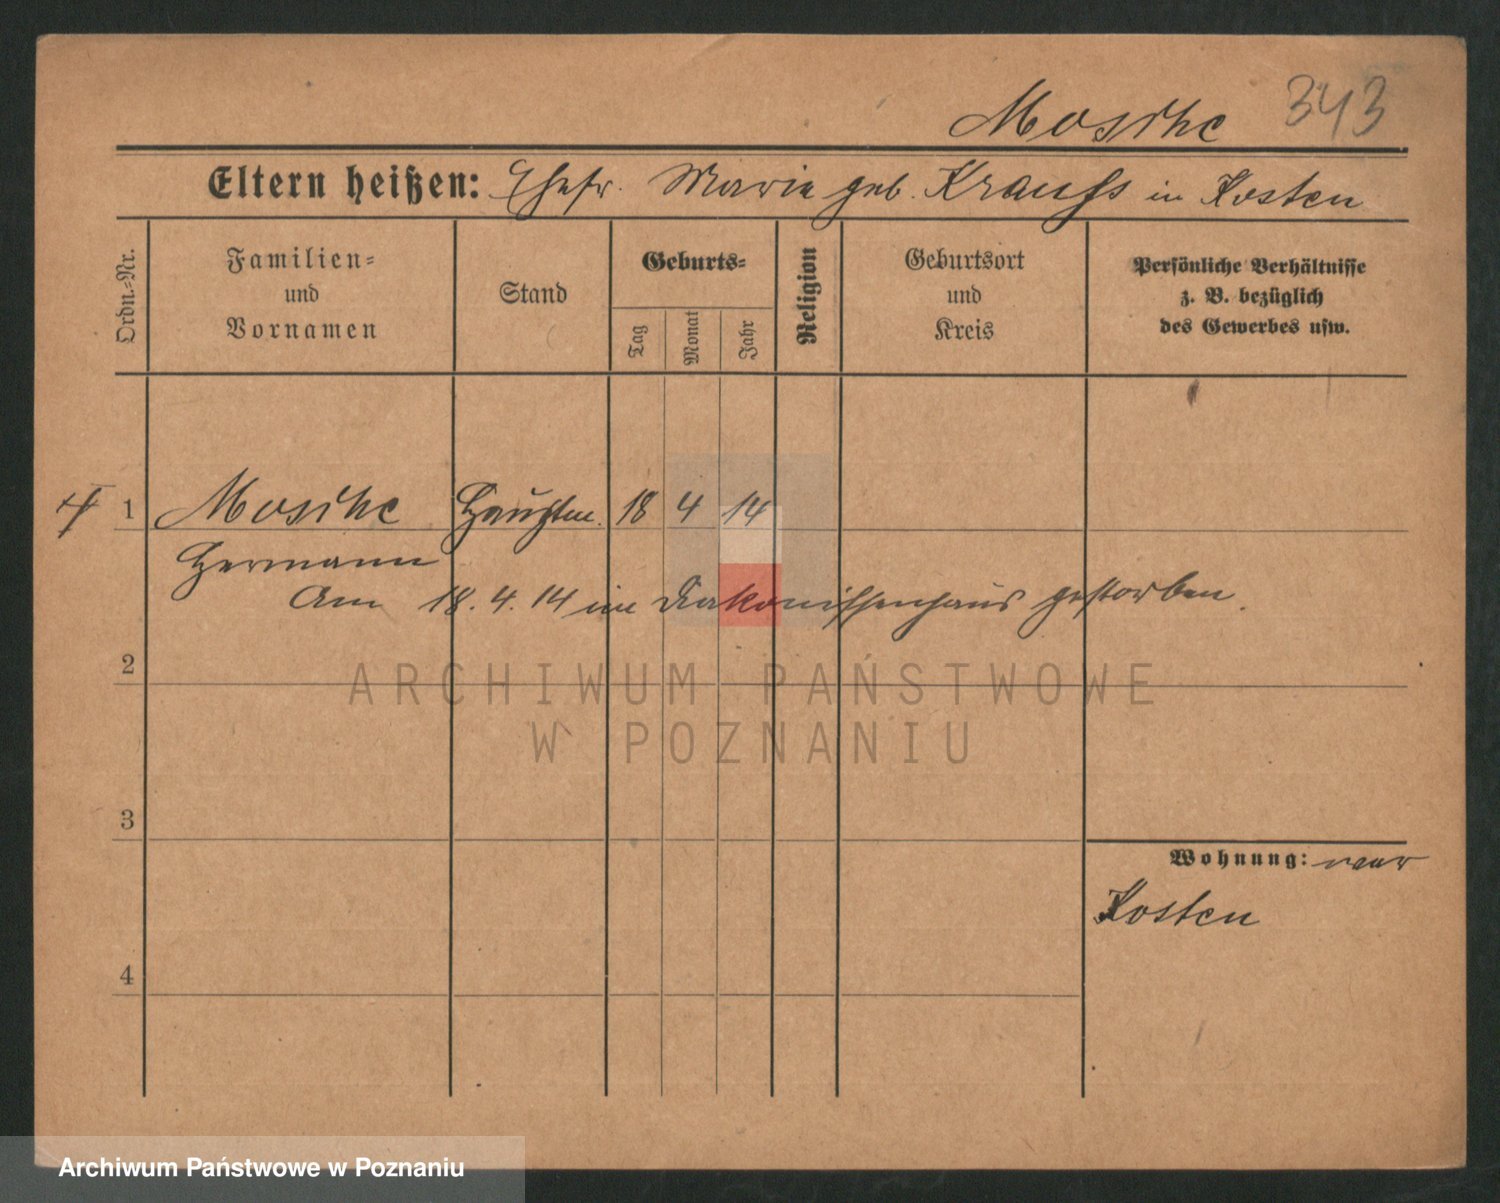 343
Mosihe
Eltern heißen: Ehefr. Marie geb. Krauss in Kosten
Ordn.-Nr.
Familien-
und
Vornamen
Stand
Geburts-
Tag
Monat
Jahr
Religion
Geburtsort
und
Kreis
Persönliche Verhältnisse
z. B. bezüglich
des Gewerbes usw.
1 Mosihe Hauptm. 18 4 14
Hermann
Am 18.4.14 im Diakonissenhaus gestorben.
2
ARCHIWUM PAŃSTWOWE
W POZNANIU
3
Wohnung: war
Kosten
4
Archiwum Państwowe w Poznaniu